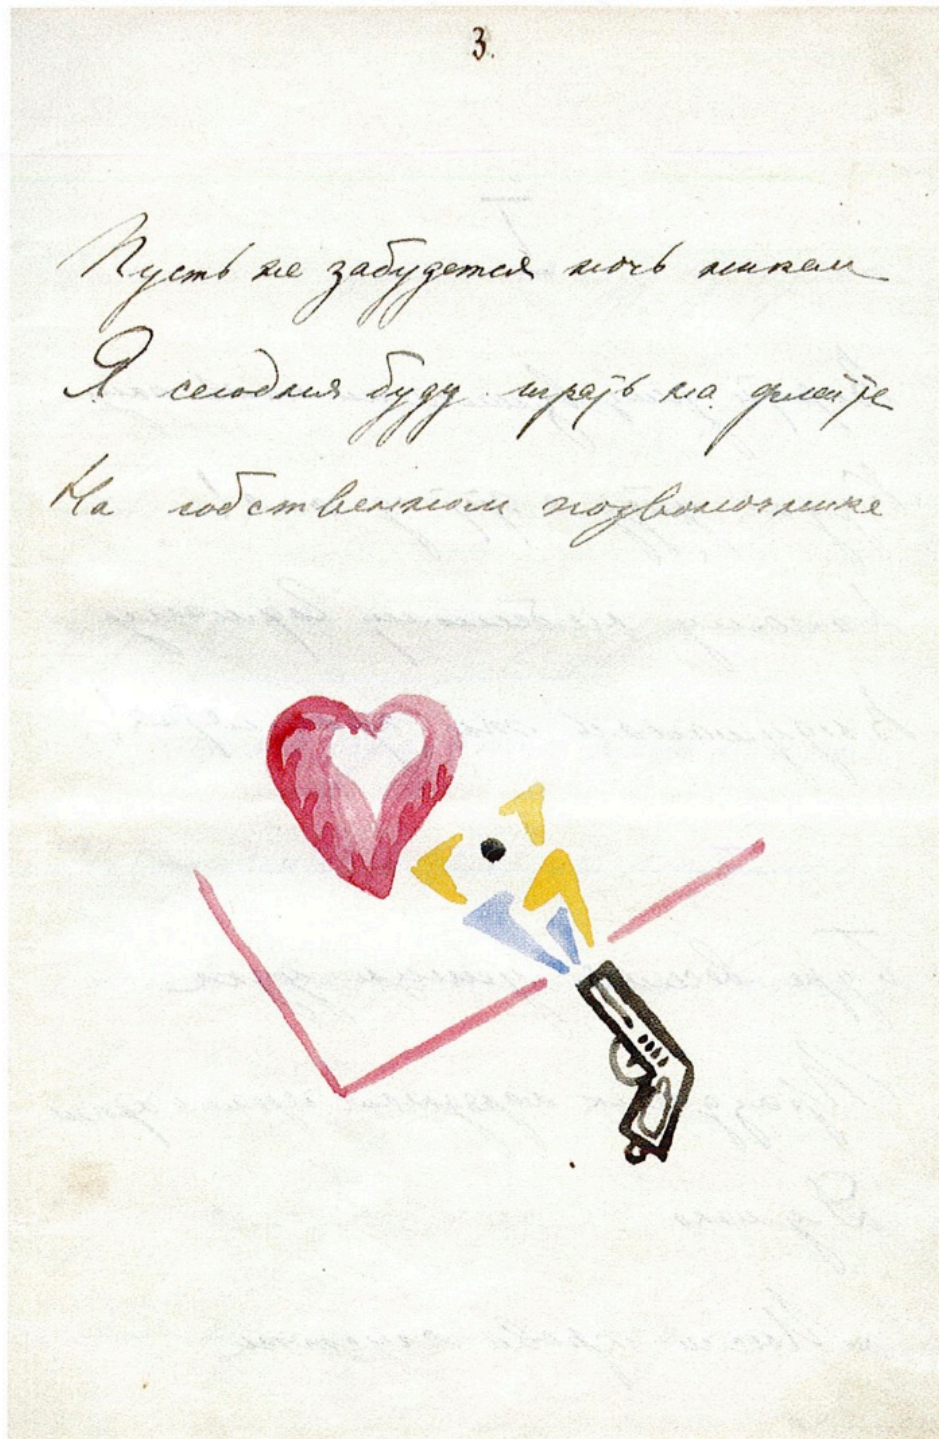 3.
Пусть не забудется ночь никем
Я сегодня буду играть на флейте
На собственном позвоночнике